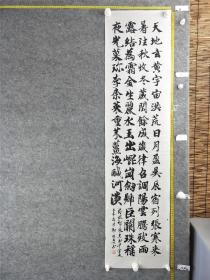 天地玄黄宇宙洪荒日月盈昃辰宿列張寒来
暑往秋收冬藏閏餘成歲律召調陽雲騰致雨
露結為霜金生麗水玉出崑岡劍號巨闕珠稱
夜光菓珍李柰菜重芥薑海鹹河淡